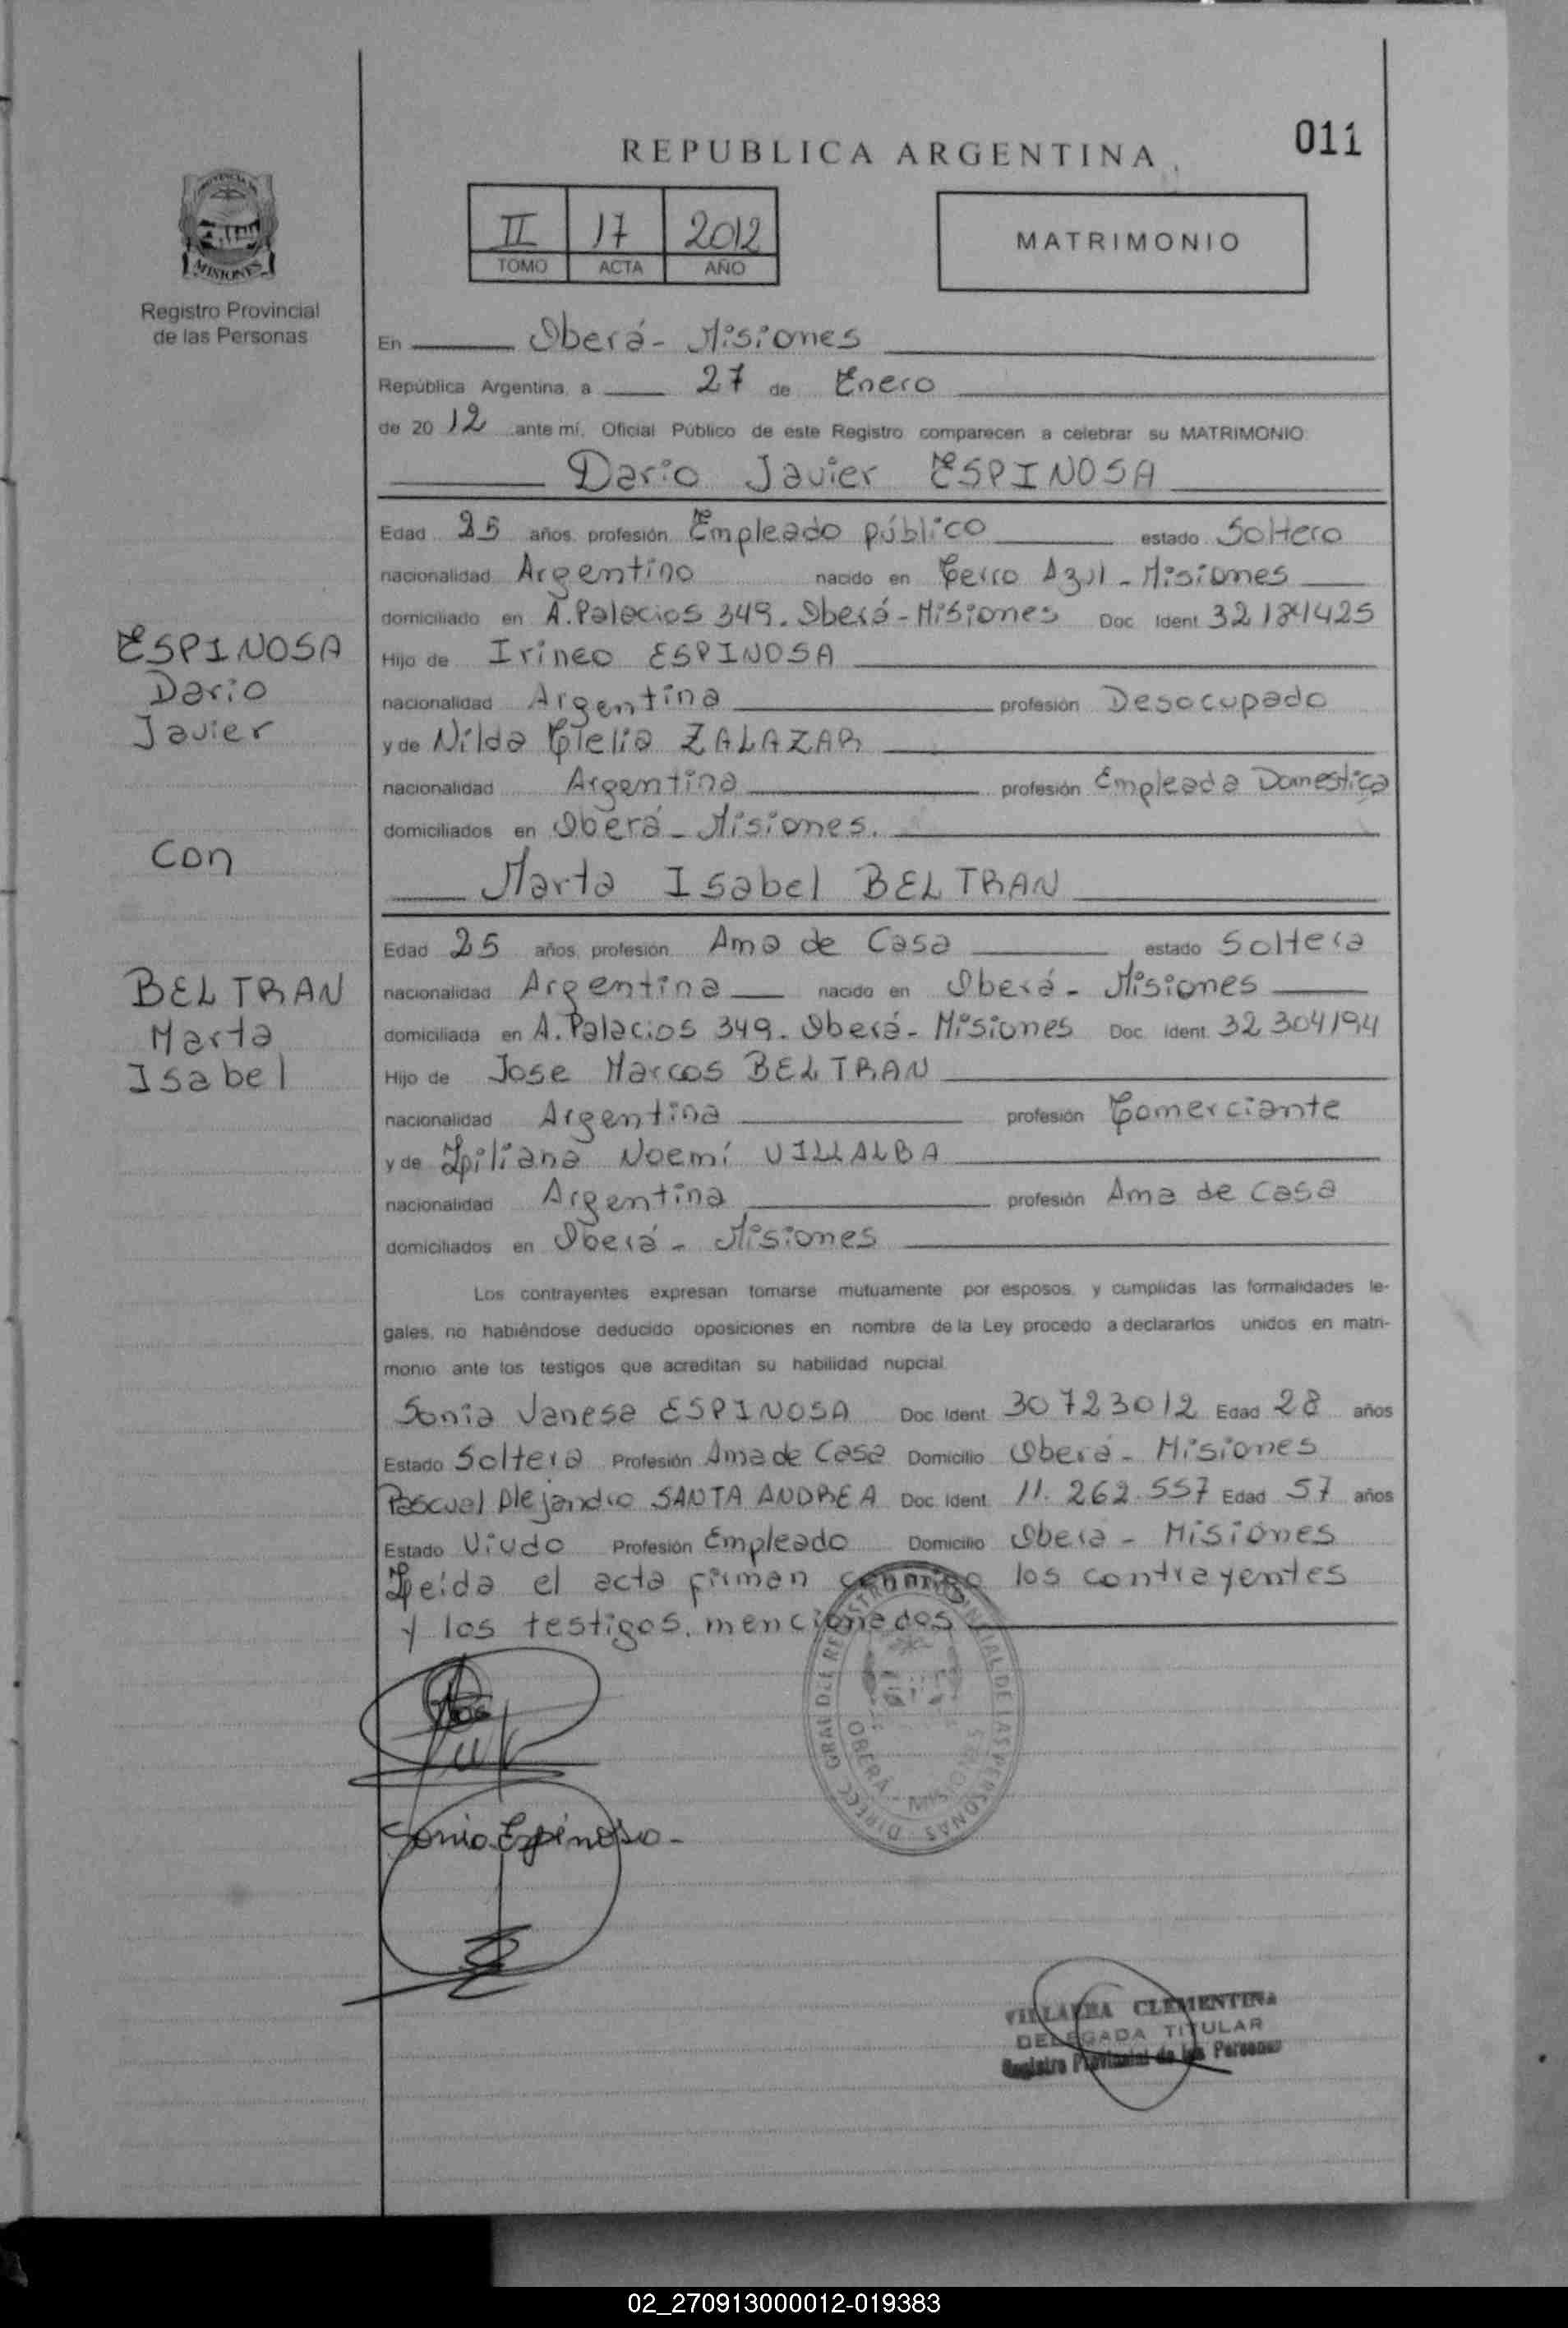 REPUBLICA ARGENTINA
011
II 17 2012
TOMO ACTA AÑO
MATRIMONIO
MISIONES
Registro Provincial
de las Personas
En Oberá - Misiones
República Argentina, a 27 de Enero
de 20 12 ante mí, Oficial Público de este Registro comparecen a celebrar su MATRIMONIO:
Dario Javier ESPINOSA
Edad 25 años, profesión Empleado público estado Soltero
nacionalidad Argentino nacido en Cerro Azul - Misiones
domiciliado en A. Palacios 349. Oberá - Misiones Doc. Ident. 32184425
Hijo de Irineo ESPINOSA
nacionalidad Argentina profesión Desocupado
y de Nilda Clelia ZALAZAR
nacionalidad Argentina profesión Empleada Domestica
domiciliados en Oberá - Misiones.
ESPINOSA
Dario
Javier
Con
BELTRAN
Marta
Isabel
Marta Isabel BELTRAN
Edad 25 años, profesión Ama de Casa estado Soltera
nacionalidad Argentina nacido en Oberá - Misiones
domiciliada en A. Palacios 349. Oberá - Misiones Doc. Ident. 32304194
Hijo de Jose Marcos BELTRAN
nacionalidad Argentina profesión Comerciante
y de Liliana Noemí VILLALBA
nacionalidad Argentina profesión Ama de casa
domiciliados en Oberá - Misiones
Los contrayentes expresan tomarse mutuamente por esposos, y cumplidas las formalidades le-
gales, no habiéndose deducido oposiciones en nombre de la Ley procedo a declararlos unidos en matri-
monio ante los testigos que acreditan su habilidad nupcial.
Sonia Vanesa ESPINOSA Doc. Ident. 30723012 Edad 28 años
Estado Soltera Profesión Ama de Casa Domicilio Oberá - Misiones
Pascual Alejandro SANTA ANDREA Doc. Ident. 11.262.557 Edad 57 años
Estado Viudo Profesión Empleado Domicilio Obera - Misiones
Leída el acta firman conmigo los contrayentes
y los testigos, mencionados
DIRECC. GRAL DEL REGISTRO PROVINCIAL DE LAS PERSONAS
OBERÁ - MISIONES
Sonia Espinosa -
VILLALBA CLEMENTINA
DELEGADA TITULAR
Registro Provincial de las Personas
02_270913000012-019383